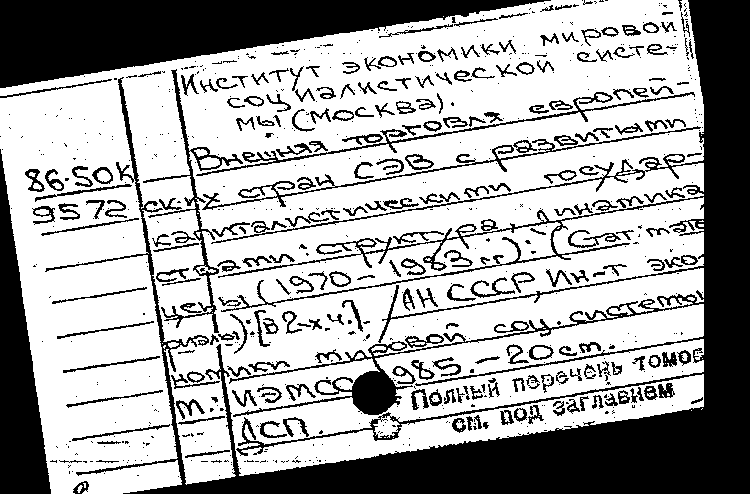 Институт экономики мировой
социалистической систе-
мы (Москва).
Внешняя торговля европей-
86-50К
9572 ских стран СЭВ с развитыми
капиталистическими государ-
ствами: структура, динамика
цены (1970-1983 гг): (Стат. матe
риалы): [в 2-х ч.] / АН СССР, Ин-т эко-
номики мировой соц. системы
М.: ИЭМСС 1985. - 20 см.
Полный перечень томов
ДСП.
см. под заглавием